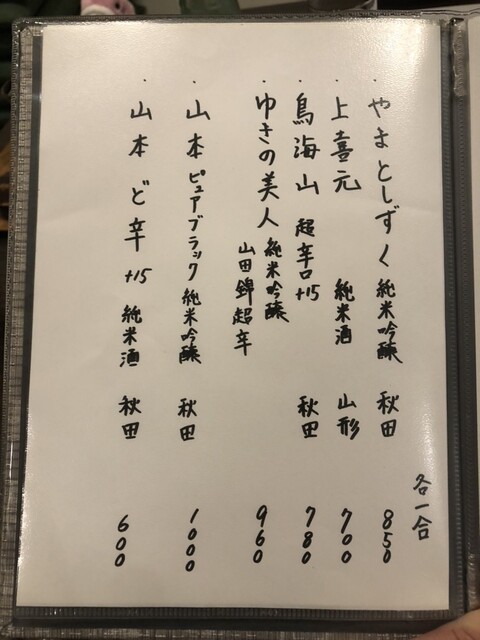 各一合
・やまとしずく 純米吟醸 秋田 850
・上喜元 純米酒 山形 700
・鳥海山 超辛口+15 秋田 780
・ゆきの美人 純米吟醸 山田錦超辛 960
・山本ピュアブラック 純米吟醸 秋田 1000
・山本 ど辛 +15 純米酒 秋田 600